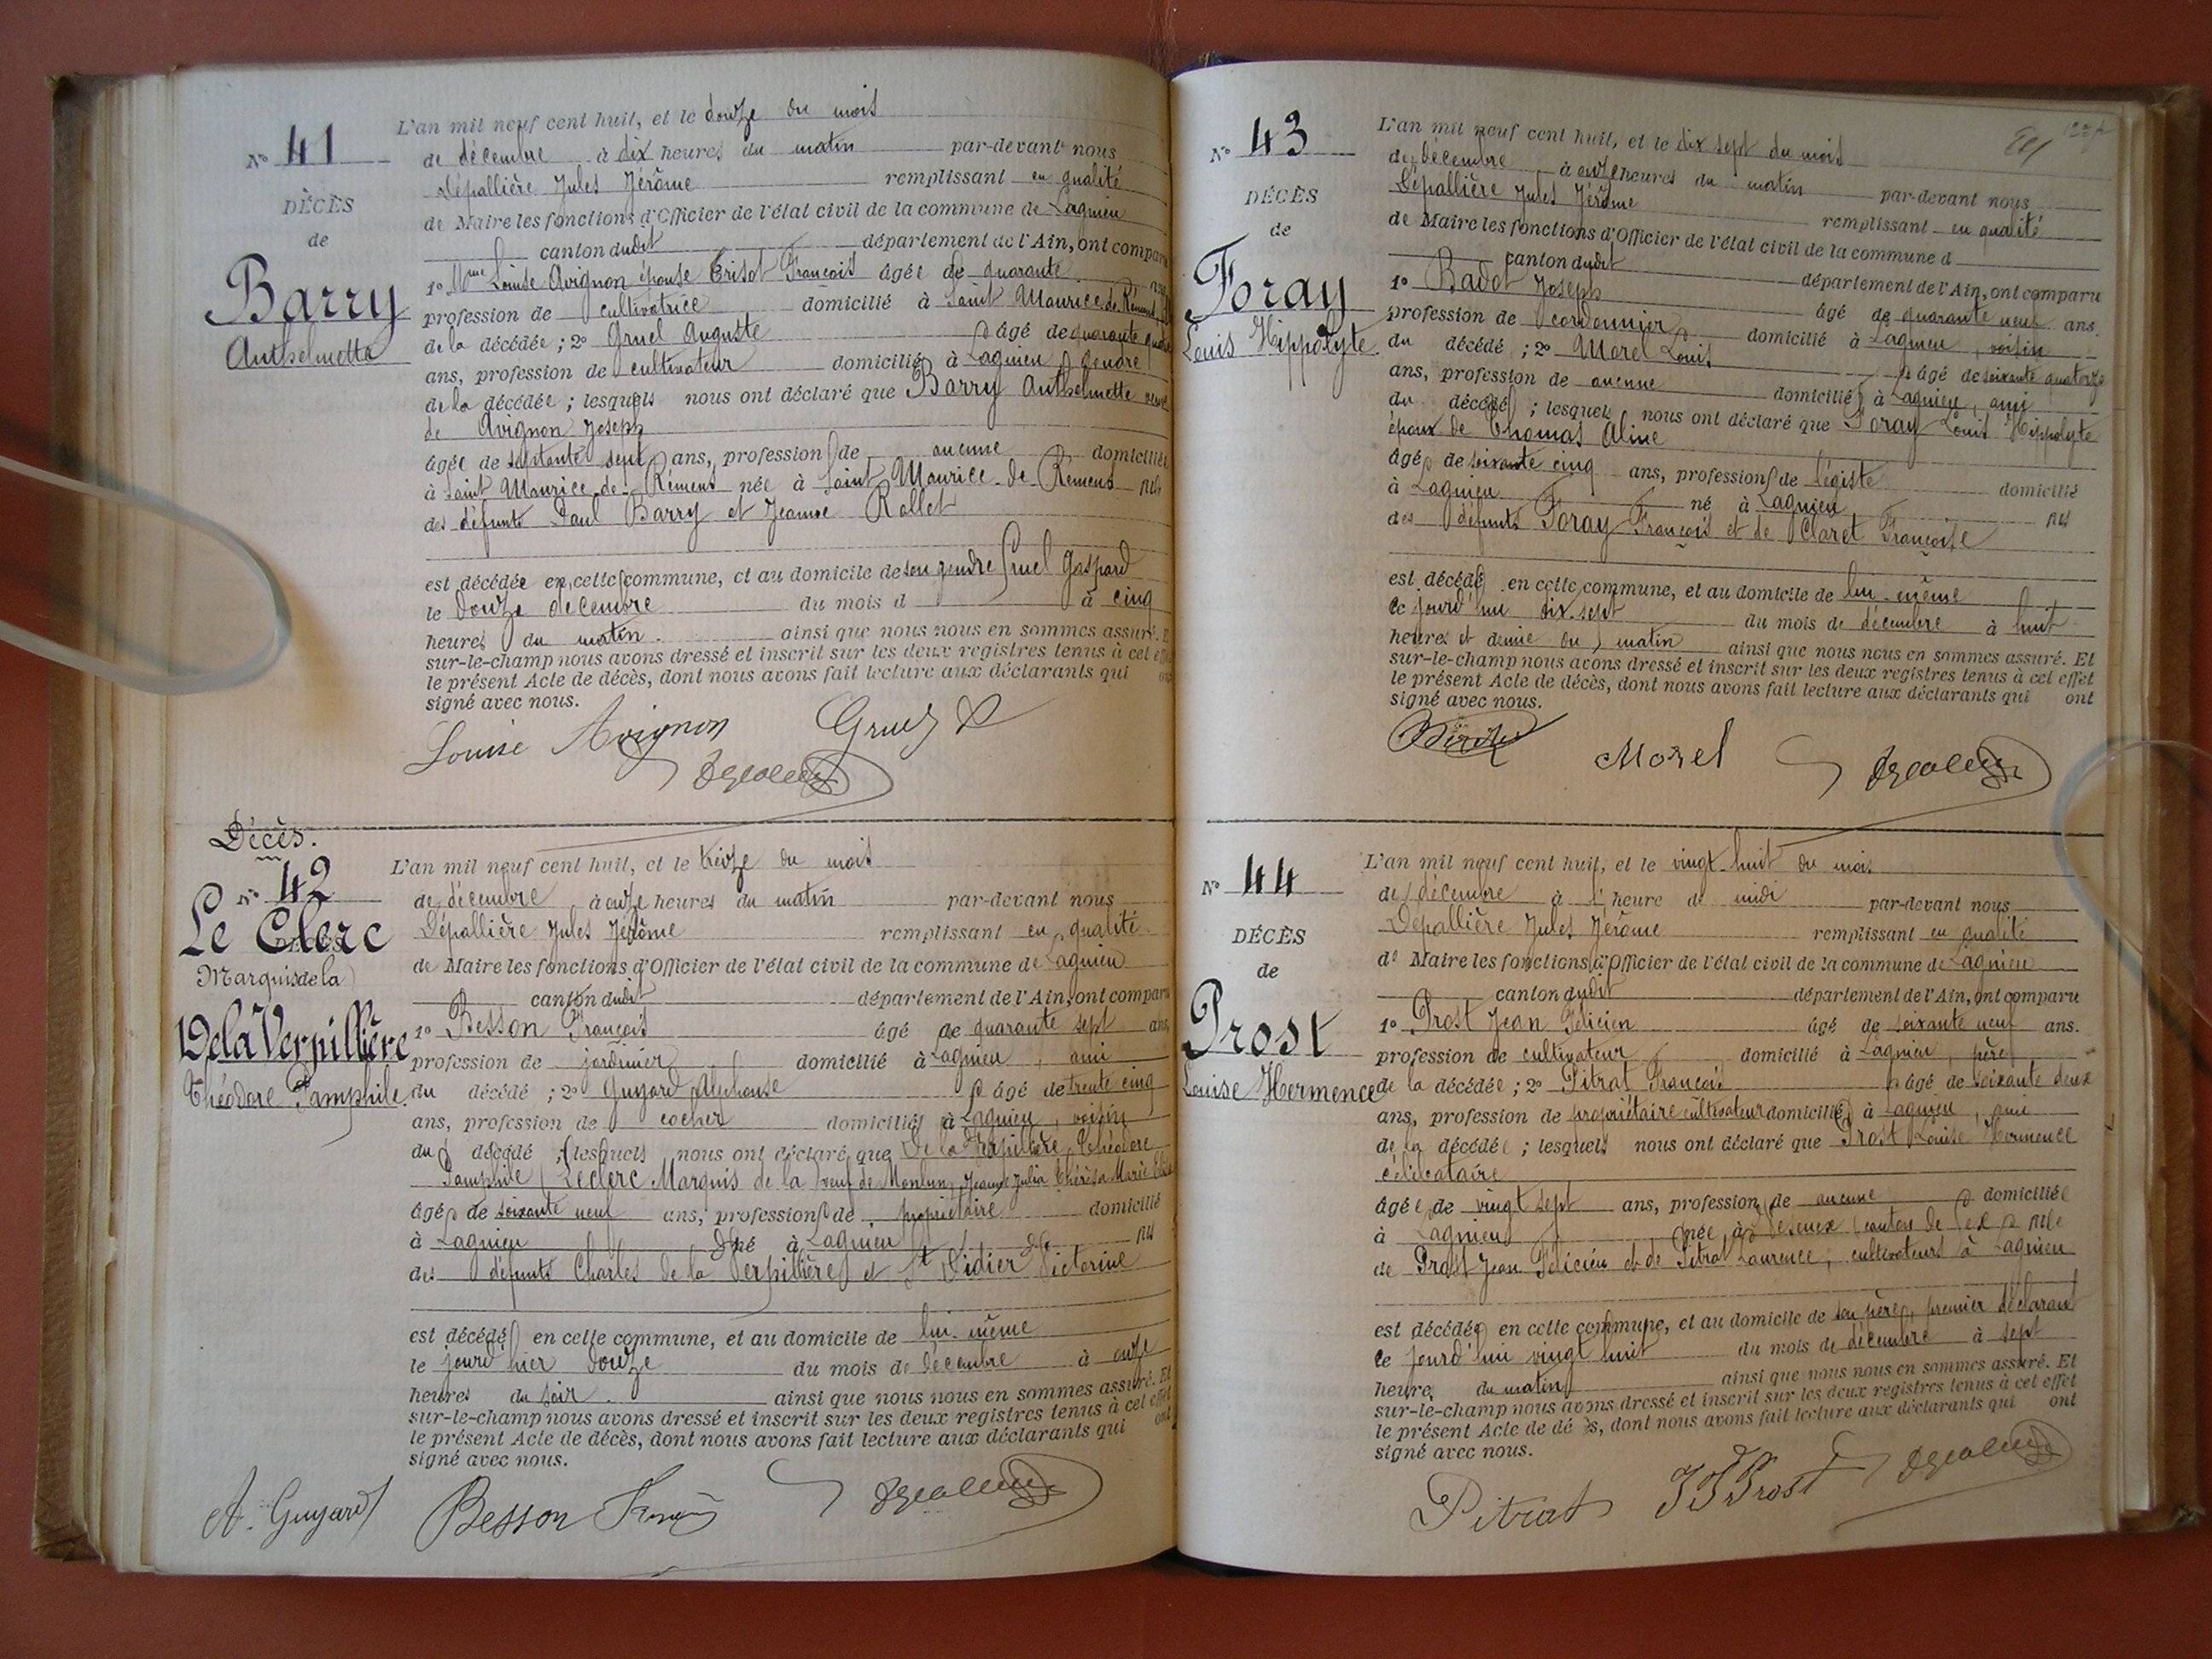 L'an mil neuf cent huit, et le douze du mois
N° 41
de décembre à dix heures du matin par-devant nous
Dépallière Jules Jérôme remplissant en qualité
DÉCÈS
de Maire les fonctions d'Officier de l'état civil de la commune de Lagnieu
de
canton dudit département de l'Ain, ont comparu
Barry
1° Mme Louise Avignon épouse Trisot François âgée de quarante
Anthelmette
profession de cultivatrice domicilié à Saint Maurice de Rémens
de la décédée ; 2° Gruel Auguste âgé de quarante quatre
ans, profession de cultivateur domicilié à Lagnieu gendre
de la décédée ; lesquels nous ont déclaré que Barry Anthelmette veuve
de Avignon Joseph
âgée de septante sept ans, profession de aucune domiciliée
à Saint Maurice de Rémens née à Saint Maurice de Rémens fille
des défunts Paul Barry et Jeanne Rollet
est décédée en cette commune, et au domicile de son gendre Gruel Gaspard
le douze décembre du mois d à cinq
heures du matin. ainsi que nous nous en sommes assuré. E
sur-le-champ nous avons dressé et inscrit sur les deux registres tenus à cet effet
le présent Acte de décès, dont nous avons fait lecture aux déclarants qui ont
signé avec nous.
Louise Avignon Gruel
Décès.
N° 42
Le Clerc
DÉCÈS
Marquis de la
De la Verpillière
Théodore Pamphile
L'an mil neuf cent huit, et le treize du mois
de décembre à onze heures du matin par-devant nous
Dépallière Jules Jérôme remplissant en qualité
de Maire les fonctions d'Officier de l'état civil de la commune de Lagnieu
canton dudit département de l'Ain, ont comparu
1° Besson François âgé de quarante sept ans
profession de jardinier domicilié à Lagnieu, ami
du décédé ; 2° Guyard Alphonse âgé de trente cinq
ans, profession de cocher domicilié à Lagnieu, voisin
du décédé ; lesquels nous ont déclaré que De la Verpillière Théodore
Pamphile Leclerc Marquis de la veuf de Monlun Jeanne Julia Thérèsa Marie
âgé de soixante neuf ans, profession de propriétaire domicilié
à Lagnieu né à Lagnieu fils
des défunts Charles de la Verpillière et de St Didier Victorine
est décédé en cette commune, et au domicile de lui-même
le jourd'hier douze du mois de décembre à onze
heures du soir. ainsi que nous nous en sommes assuré. Et
sur-le-champ nous avons dressé et inscrit sur les deux registres tenus à cet effet
le présent Acte de décès, dont nous avons fait lecture aux déclarants qui ont
signé avec nous.
A. Guyard Besson
L'an mil neuf cent huit, et le dix sept du mois
N° 43
de décembre à onze heures du matin par-devant nous
Dépallière Jules Jérôme remplissant en qualité
DÉCÈS
de Maire les fonctions d'Officier de l'état civil de la commune d
de
canton dudit département de l'Ain, ont comparu
Foray
Louis Hippolyte
1° Badot Joseph âgé de quarante neuf ans.
profession de cordonnier domicilié à Lagnieu, voisin
du décédé ; 2° Morel Louis âgé de soixante quatorze
ans, profession de aucune domicilié à Lagnieu, ami
du décédé ; lesquels nous ont déclaré que Foray Louis Hippolyte
époux de Thomas Aline
âgé de soixante cinq ans, profession de légiste domicilié
à Lagnieu né à Lagnieu fils
des défunts Foray François et de Claret Françoise
est décédé en cette commune, et au domicile de lui-même
ce jourd'hui dix sept du mois de décembre à huit
heures et demie du matin ainsi que nous nous en sommes assuré. Et
sur-le-champ nous avons dressé et inscrit sur les deux registres tenus à cet effet
le présent Acte de décès, dont nous avons fait lecture aux déclarants qui ont
signé avec nous.
Morel
L'an mil neuf cent huit, et le vingt huit du mois
N° 44
de décembre à l'heure de midi par-devant nous
Dépallière Jules Jérôme remplissant en qualité
DÉCÈS
de Maire les fonctions d'Officier de l'état civil de la commune de Lagnieu
de
canton dudit département de l'Ain, ont comparu
Prost
Louise Hermence
1° Prost Jean Félicien âgé de soixante neuf ans.
profession de cultivateur domicilié à Lagnieu, père
de la décédée ; 2° Pitrat François âgé de soixante deux
ans, profession de propriétaire cultivateur domicilié à Lagnieu, ami
de la décédée ; lesquels nous ont déclaré que Prost Louise Hermence
célibataire
âgée de vingt sept ans, profession de aucune domiciliée
à Lagnieu née à canton de Gex fille
de Prost Jean Félicien et de Pitrat Laurence, cultivateurs à Lagnieu
est décédée en cette commune, et au domicile de son père, premier déclarant
ce jourd'hui vingt huit du mois de décembre à sept
heure, du matin ainsi que nous nous en sommes assuré. Et
sur-le-champ nous avons dressé et inscrit sur les deux registres tenus à cet effet
le présent Acte de décès, dont nous avons fait lecture aux déclarants qui ont
signé avec nous.
Pitrat JF Prost